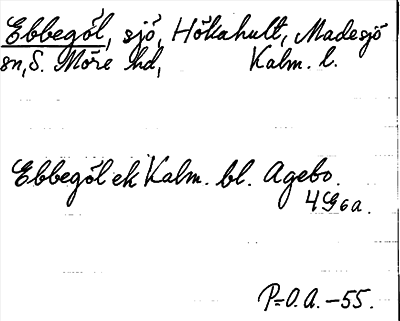 Ebbegöl, sjö, Hökahult, Madesjö
sn, S. Möre hd, Kalm. l.
Ebbegöl ek Kalm. bl. Agebo.
4G6a.
P-O.A. -55.